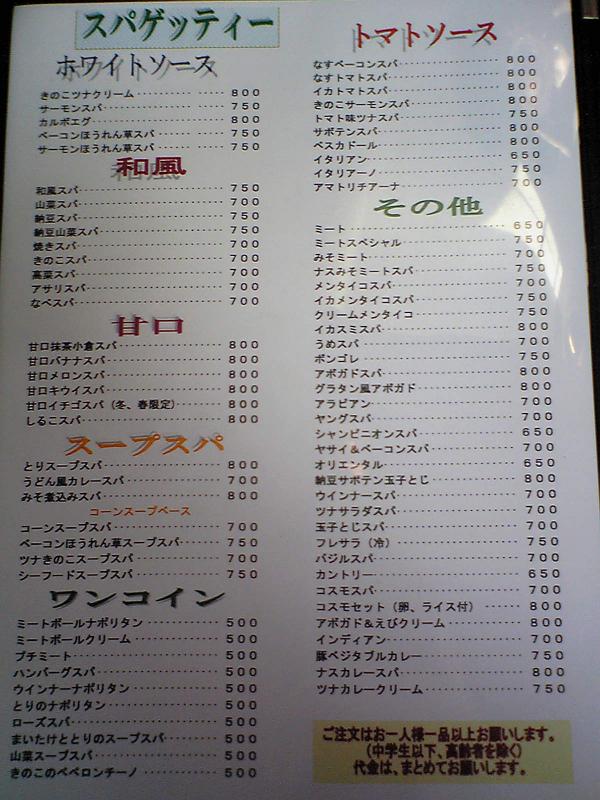 スパゲッティー
ホワイトソース
きのこツナクリーム 800
サーモンスパ 750
カルボエグ 800
ベーコンほうれん草スパ 750
サーモンほうれん草スパ 750
和風
和風スパ 750
山菜スパ 700
納豆スパ 700
納豆山菜スパ 750
焼きスパ 700
きのこスパ 700
高菜スパ 700
アサリスパ 700
なべスパ 700
甘口
甘口抹茶小倉スパ 800
甘口バナナスパ 800
甘口メロンスパ 800
甘口キウイスパ 800
甘口イチゴスパ（冬、春限定） 800
しるこスパ 800
スープスパ
とりスープスパ 800
うどん風カレースパ 700
みそ煮込みスパ 800
コーンスープベース
コーンスープスパ 700
ベーコンほうれん草スープスパ 750
ツナきのこスープスパ 700
シーフードスープスパ 750
ワンコイン
ミートボールナポリタン 500
ミートボールクリーム 500
プチミート 500
ハンバーグスパ 500
ウインナーナポリタン 500
とりのナポリタン 500
ローズスパ 500
まいたけととりのスープスパ 500
山菜スープスパ 500
きのこのペペロンチーノ 500
トマトソース
なすベーコンスパ 800
なすトマトスパ 800
イカトマトスパ 800
きのこサーモンスパ 800
トマト味ツナスパ 750
サボテンスパ 800
ペスカドール 800
イタリアン 650
イタリアーノ 750
アマトリチアーナ 700
その他
ミート 650
ミートスペシャル 750
みそミート 700
ナスみそミートスパ 750
メンタイコスパ 700
イカメンタイコスパ 750
クリームメンタイコ 750
イカスミスパ 800
うめスパ 700
ボンゴレ 750
アボガドスパ 800
グラタン風アボガド 800
アラビアン 700
ヤングスパ 700
シャンピニオンスパ 650
ヤサイ＆ベーコンスパ 700
オリエンタル 650
納豆サボテン玉子とじ 800
ウインナースパ 700
ツナサラダスパ 700
玉子とじスパ 700
フレサラ（冷） 750
バジルスパ 700
カントリー 650
コスモスパ 700
コスモセット（卵、ライス付） 800
アボガド＆えびクリーム 800
インディアン 700
豚ベジタブルカレー 750
ナスカレースパ 800
ツナカレークリーム 750
ご注文はお一人様一品以上お願いします。
（中学生以下、高齢者を除く）
代金は、まとめてお願いします。